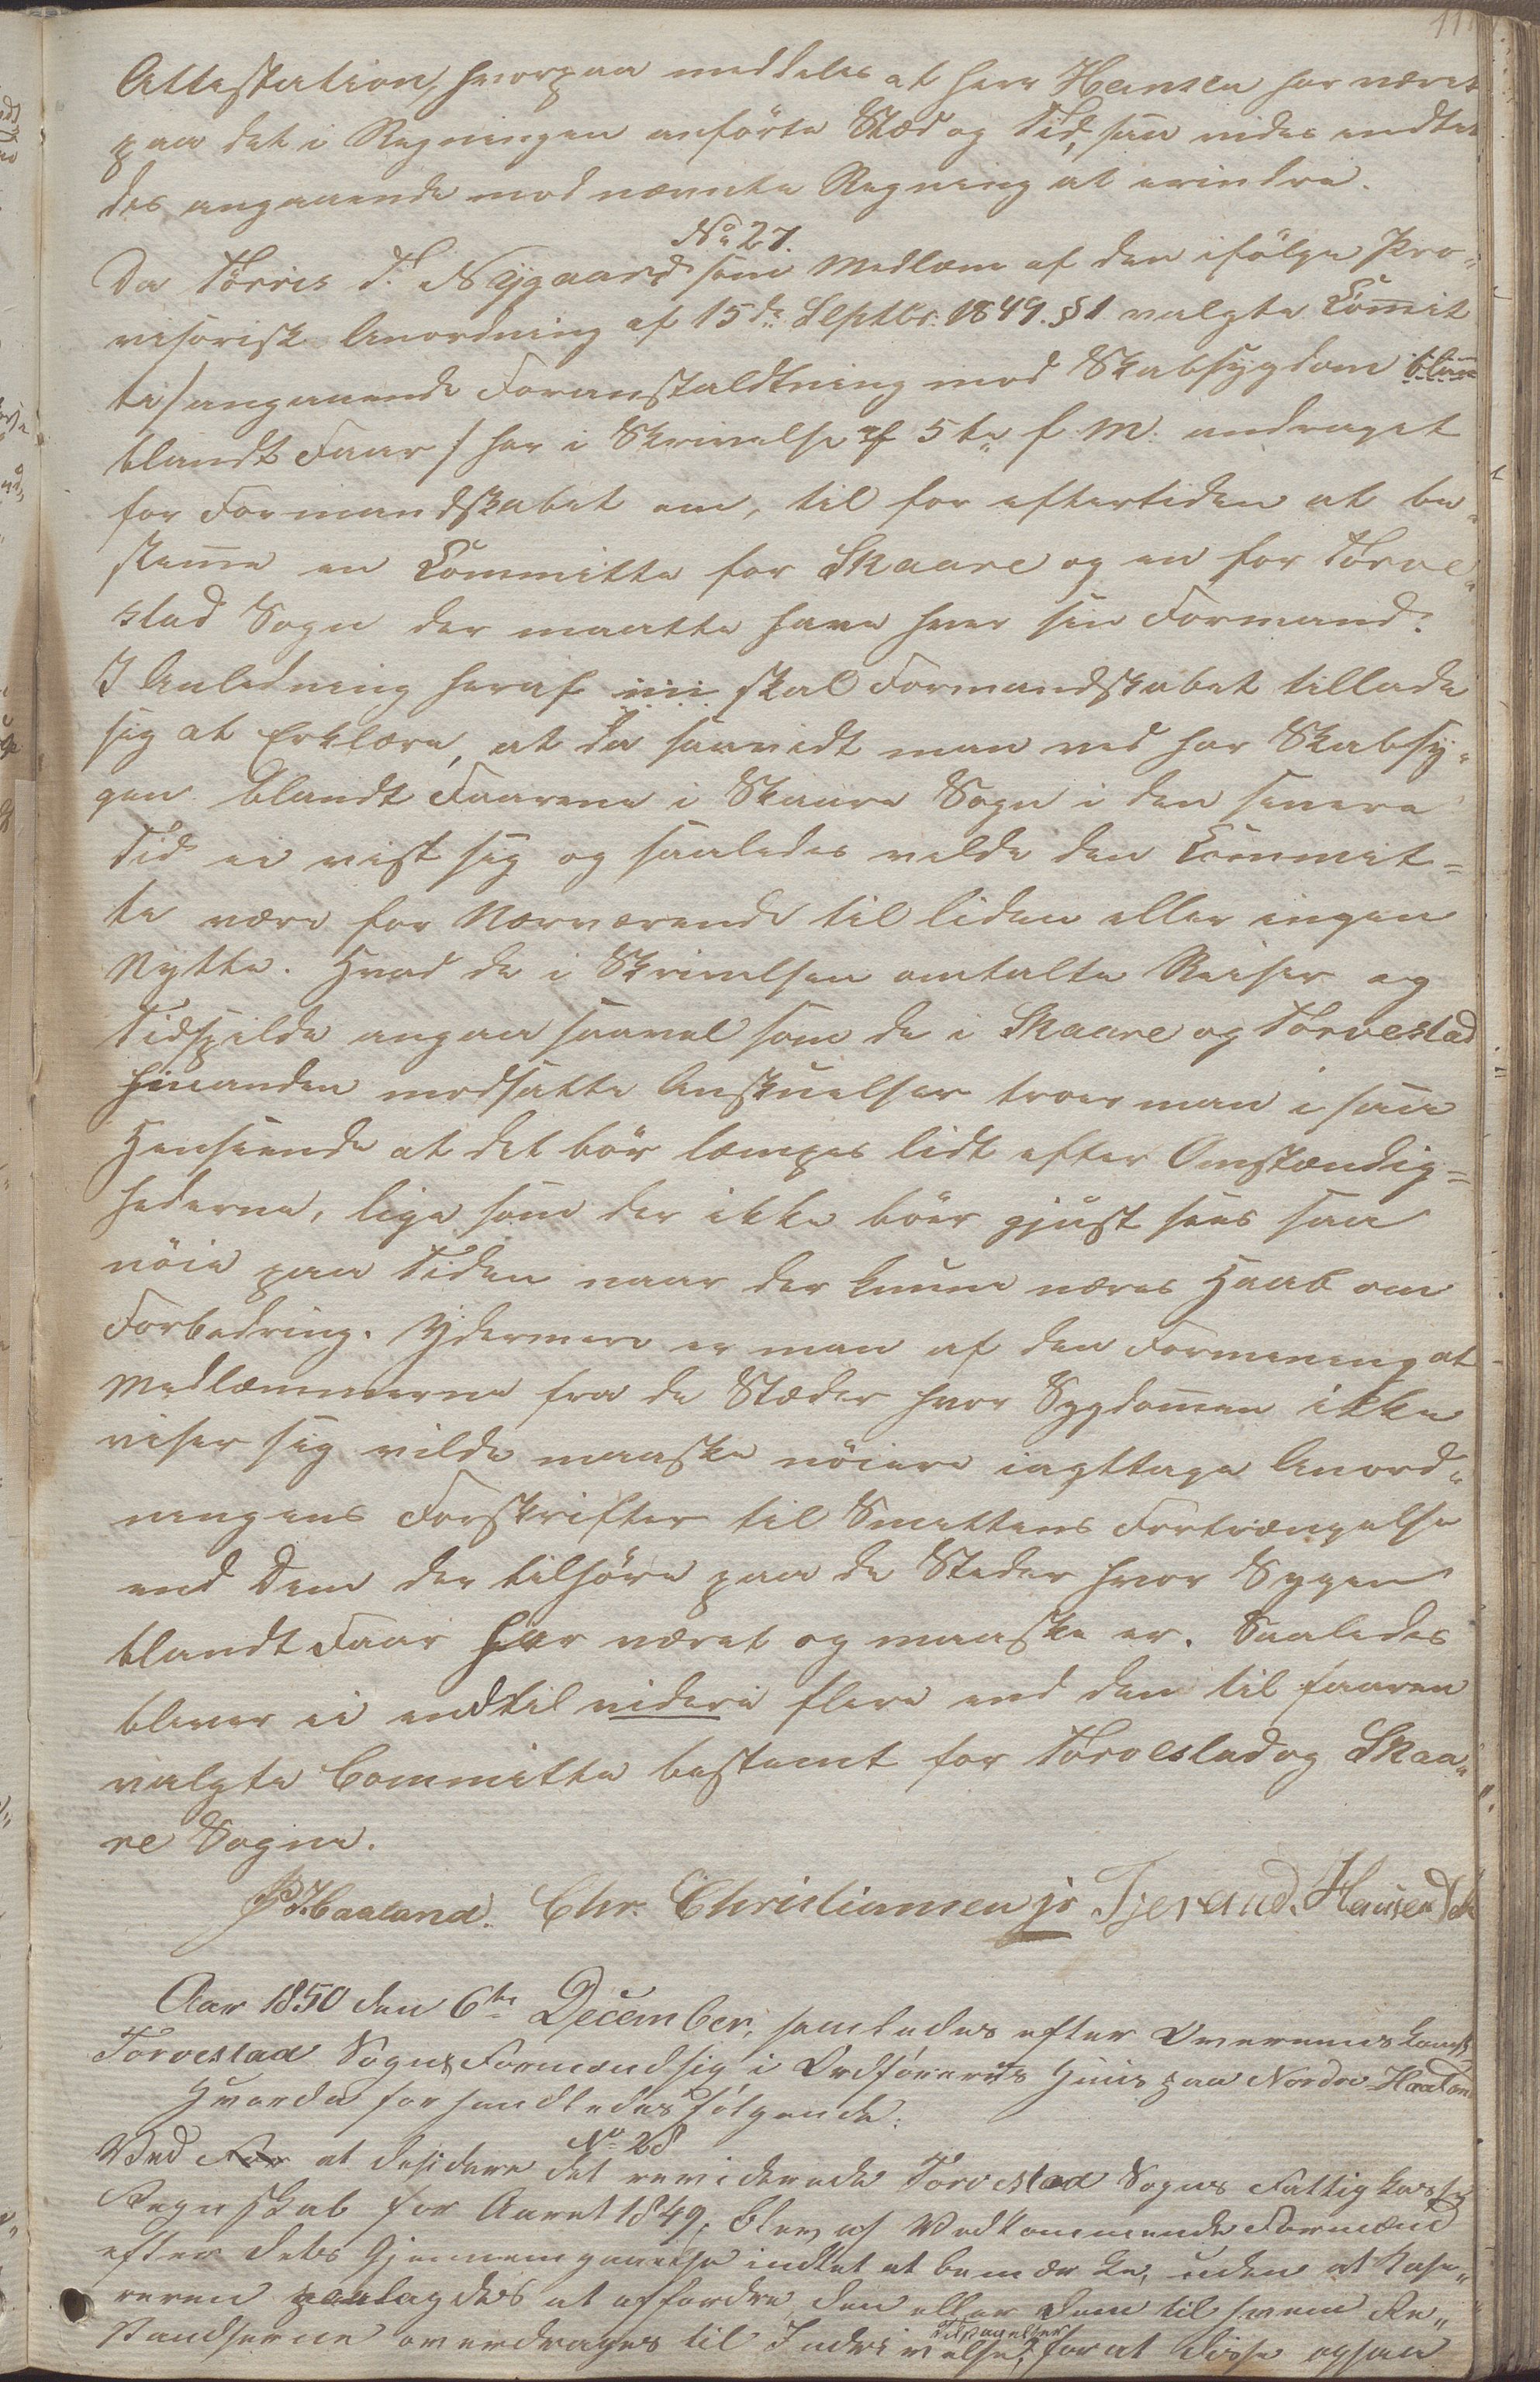 111
Attestation, hvorpaa meddeles at herr Hansen har været
paa det i Regningen anförte Stæd og Tid, saa vides indtet
des angaaende mod nævnte Regning at erindre.
No 27.
Da Törres T. Nygaard som Medlem af den ifölge Pro-
visorisk Anordning af 15de Septbr. 1849. § 1 valgte Commit
te/angaaende Foranstaldtning mod Skabsygdom blan
blandt Faar/ har i Skrivelse af 5te f. M. andraget
for Formandskabet om, til for eftertiden at be-
stemme en Committe for Skaare og en for Törve-
stad Sogn der maatte have hver sin Formand.
I Anledning heraf skal Formandskabet tillade
sig at Erklære, at da saavidt man ved har Skabsy-
gen blandt Faarene i Skaare Sogn i den senere
Tid ei vist sig og saaledes vilde den Commit-
te være for Nærværende til liden eller ingen
Nytte. Hvad de i Skrivelsen omtalte Reiser og
Tidspilde angaa saavel som de i Skaare og Törvestad
hinanden modsatte Anskuelser troer man i saa
Henseende at det bör læmpes lidt efter Omstændig-
hederne, lige som der ikke böer gjust sees saa
nöie paa Tiden naar der kunne næres Haab om
Forbedring. Ydermere er man af den Formening at
Medlæmmerne fra de Stæder hvor Sygdommen ikke
viser sig vilde maaske nöiere iagttage Anord-
ningens Forskrifter til Smittens Fortrængelse
end Dem der tilhöre paa de Steder hvor Sygen
blandt Faar har været og maaske er. Saaledes
bliver ei indtil videre flere end den til faaren
valgte Committe bestemt for Törvestad og Skaa-
re Sogne.
Haaland. Chr. Christiansen jr Tjerand. Hansen
Aar 1850 den 6te December, samledes efter Overenskomst
Torvestad Sogns Formænd sig i Ordförerens Huus paa Nordre Haaland
Hvorda forhandledes fölgende:
No 28
Ved For at desidere det reviderede Torvestad Sogns Fattigkasse
Regnskab for Aaret 1849, blev af Vedkommende Formænd
efter dets Gjennemgaaelse indtet at bemærke, uden at Kase-
reren paalagdes at affordre den eller dem til hvem Re-
standserne overdrages til Inddrivelse, for at disse ogsaa